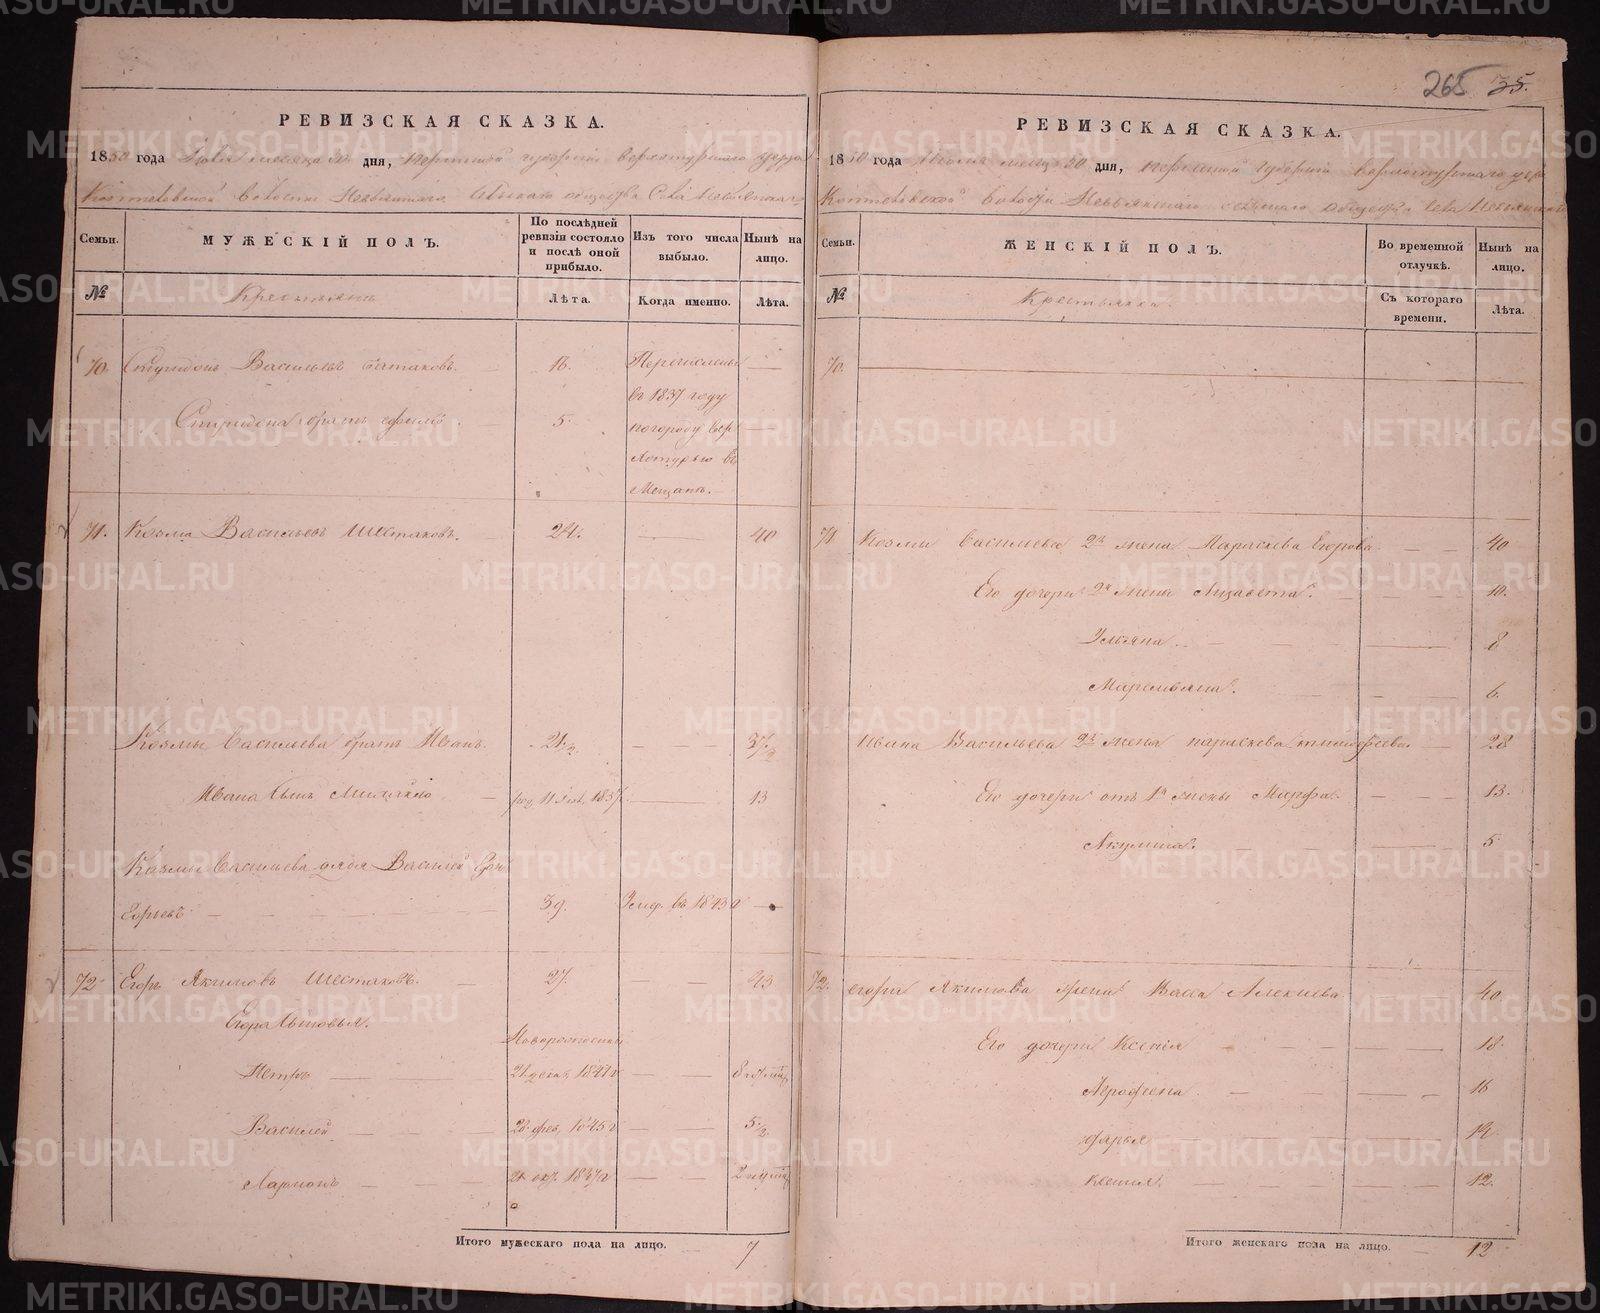 265 35.
РЕВИЗСКАЯ СКАЗКА.
1850 года Июня месяца 30 дня, Пермской губерніи Верхотурскаго уезда
Коптеловской волости Невьянскаго сельскаго общества Села Невьянскаго
Семьи. МУЖЕСКІЙ ПОЛЪ. По послѣдней ревизіи состояло и послѣ оной прибыло. Изъ того числа выбыло. Нынѣ на лицо.
№ Крестьянъ Лѣта. Когда именно. Лѣта.
70. Спиридонъ Васильевъ Шестаковъ. 16. Перечислены
въ 1837 году
Спиридона братъ 5. по городу Вер
хотурью въ
Мещанъ.
71. Козма Васильевъ Шестаковъ. 24. 40
Козмы Васильева братъ Иванъ. 21½ 37½
Ивана сынъ Михайло 1837 13
Козмы Васильева дядя Василей
Егорьевъ 39. Умер. въ 1843 г
72 Егоръ Якимовъ Шестаковъ. 27. 43
Егора сыновья. Новорожденный
Петръ 21 дека. 8
Василей 28 фев. 1845 г 5½
Ларионъ 21 окт. 1847 г 2
Итого мужескаго пола на лицо. 7
РЕВИЗСКАЯ СКАЗКА.
1850 года дня, Пермской губерніи Верхотурскаго уез
Коптеловской волости Невьянскаго сельскаго общества села Невьянскаго
Семьи. ЖЕНСКІЙ ПОЛЪ. Во временной отлучкѣ. Нынѣ на лицо.
№ Крестьянка. Съ котораго времени. Лѣта.
70.
71 Козмы Васильева 2я жена Параскева Егорова 40
Его дочери 2й жены Лизавета. 10.
Ульяна 8
Маремьяна. 6.
Ивана Васильева 2я жена Параскева Тимофеева. 28
Его дочери отъ 1й жены Марфа. 13.
Акулина. 5
72. Егора Якимова жена Васса Алекиева 40
Его дочери Ксенія 18.
Аграфена 16
Дарья 14.
Ксенія. 12.
Итого женскаго пола на лицо. 12
METRIKI.GASO-URAL.RU